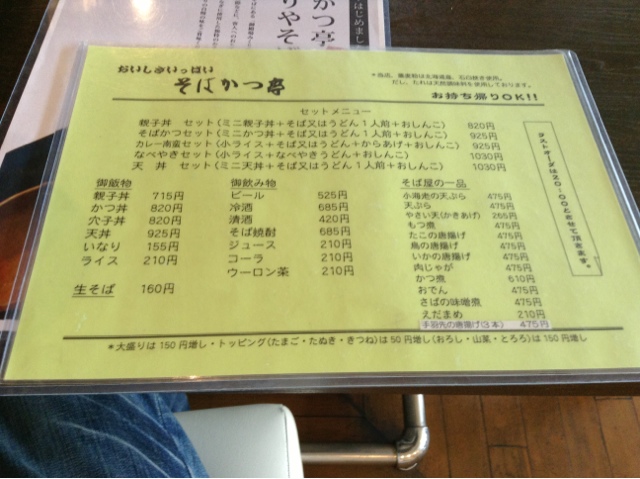 はじめまし
かつ亭
りやそ
おいしさいっぱい
そばかつ亭
＊当店、蕎麦粉は北海道産、石臼挽き使用。
だし、たれは天然調味料を使用しております。
お持ち帰りOK!!
セットメニュー
親子丼 セット(ミニ親子丼＋そば又はうどん1人前＋おしんこ) 820円
そばかつセット(ミニかつ丼＋そば又はうどん1人前＋おしんこ) 925円
カレー南蛮セット(小ライス＋そば又はうどん＋からあげ＋おしんこ) 925円
なべやきセット(小ライス＋なべやきうどん＋おしんこ) 1030円
天 丼 セット(ミニ天丼＋そば又はうどん1人前＋おしんこ) 1030円
御飯物
親子丼 715円
かつ丼 820円
穴子丼 820円
天丼 925円
いなり 155円
ライス 210円
生そば 160円
御飲み物
ビール 525円
冷酒 685円
清酒 420円
そば焼酎 685円
ジュース 210円
コーラ 210円
ウーロン茶 210円
そば屋の一品
小海老の天ぷら 475円
天ぷら 475円
やさい天(かきあげ) 265円
もつ煮 475円
たこの唐揚げ 475円
鳥の唐揚げ 475円
いかの唐揚げ 475円
肉じゃが 475円
かつ煮 610円
おでん 475円
さばの味噌煮 475円
えだまめ 210円
手羽先の唐揚げ(3本) 475円
ラストオーダは20:00とさせて頂きます。＊
＊大盛りは150円増し・トッピング(たまご・たぬき・きつね)は50円増し(おろし・山菜・とろろ)は150円増し